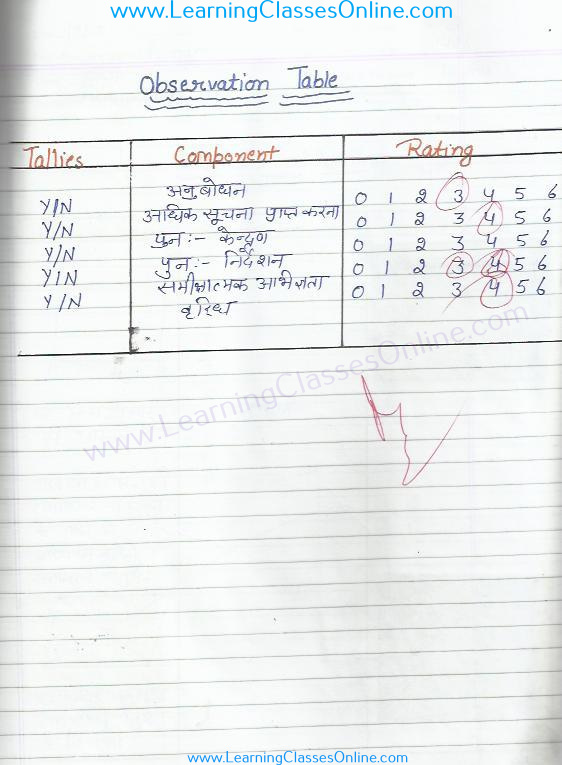 www.LearningClassesOnline.com
Observation Table
Tallies Component Rating
अनुबोधन
Y/N 0 1 2 3 4 5 6
अधिक सूचना प्राप्त करना
Y/N 0 1 2 3 4 5 6
पुन:- केन्द्रण
Y/N 0 1 2 3 4 5 6
पुन:- निर्देशन
Y/N 0 1 2 3 4 5 6
समीक्षात्मक अभिज्ञता
Y/N 0 1 2 3 4 5 6
वृद्धि
www.LearningClassesOnline.com
www.LearningClassesOnline.com